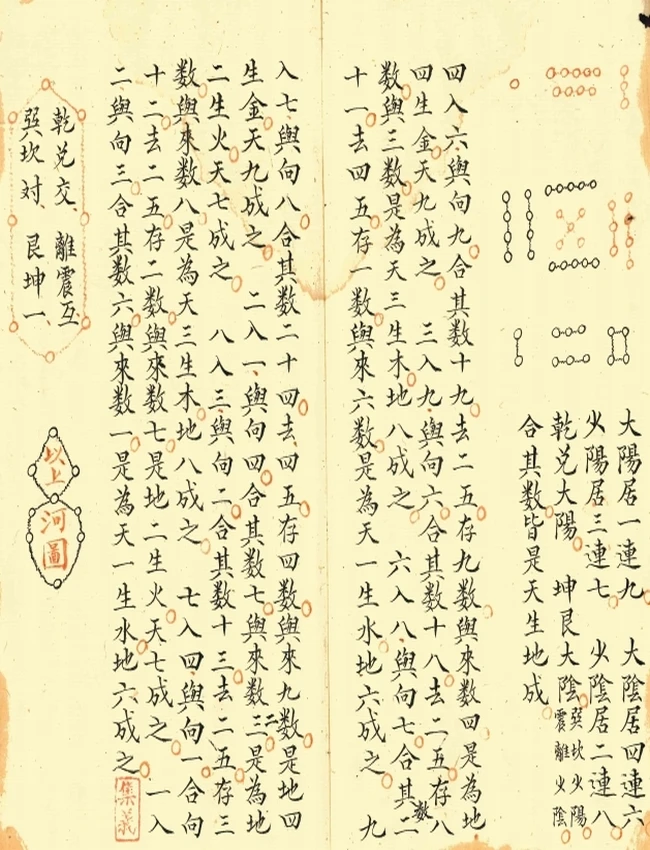 大陽居一連九　大陰居四連六
少陽居三連七　少陰居二連八
乾兌大陽　坤艮大陰　巽坎少陽
震離少陰
合其数皆是天生地成
四入六與向九合其数十九去二五存九数與來数四是為地
四生金天九成之　三入九與向六合其数十八去二五存八
数與三数是為天三生木地八成之　六入八與向七合其数二
十一去四五存一数與來六数是為天一生水地六成之　九
入七與向八合其数二十四去四五存四数與來九数是地四
生金天九成之　二入一與向四合其数七與來数二三是為地
二生火天七成之　八入三與向二合其数十三去二五存三
数與來数八是為天三生木地八成之　七入四與向一合向
十二去二五存二数與來数七是地二生火天七成之　一入
二與向三合其数六與來数一是為天一生水地六成之
集義
乾兌交　離震互
巽坎対　艮坤一
以上
河圖